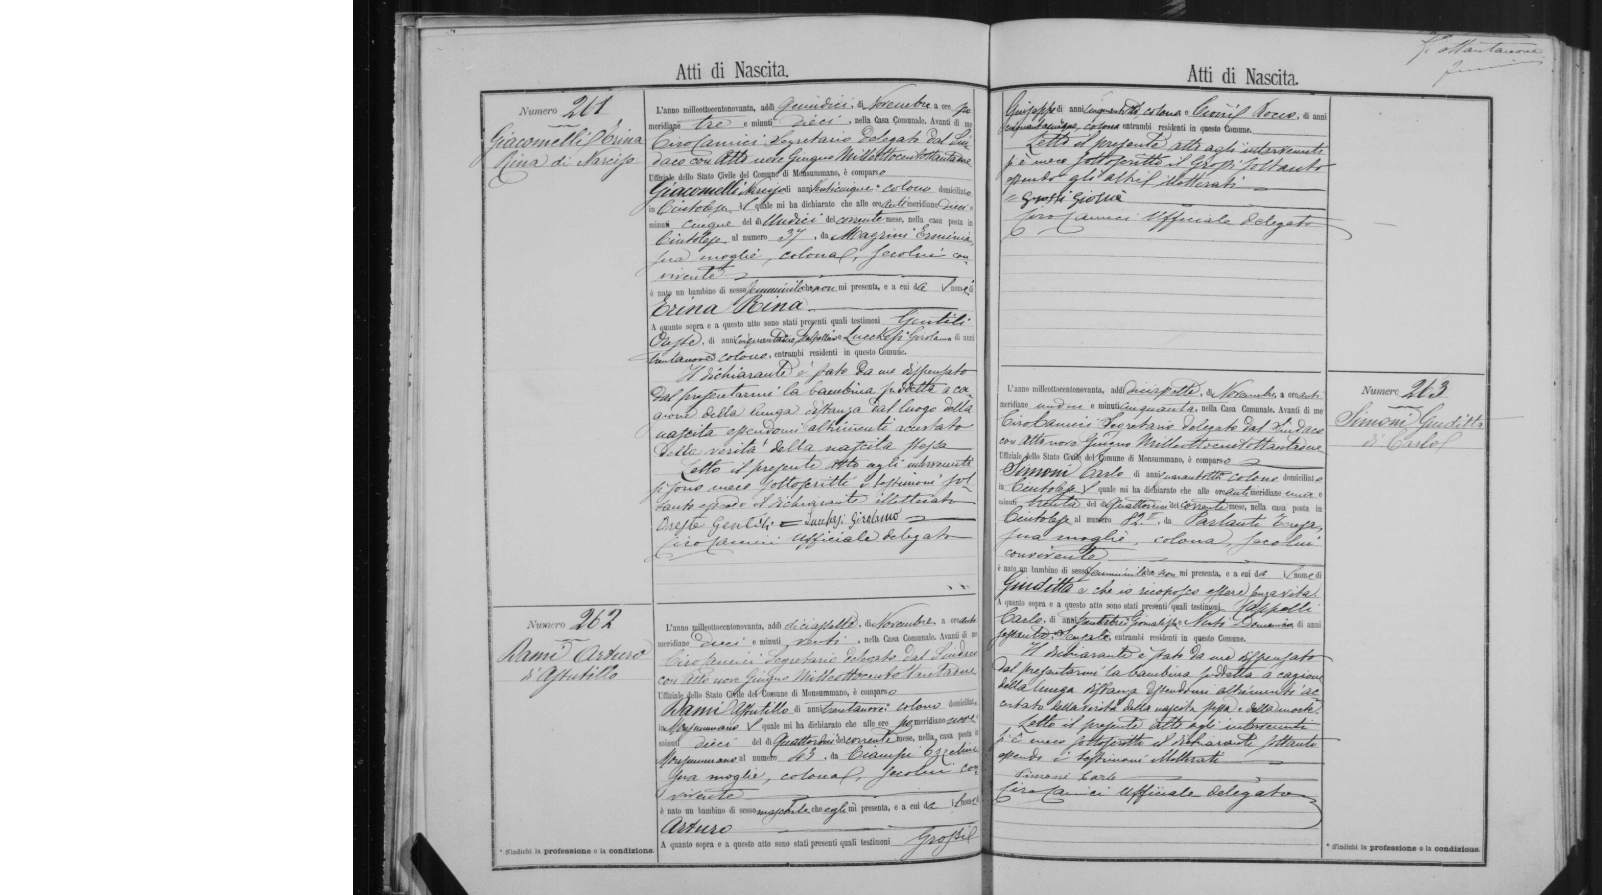 Atti di Nascita.
Numero 261
Giacomelli Erina
Rina di Narciso
L'anno milleottocentonovanta, addì quindici di Novembre a ore po
meridiane tre e minuti dieci, nella Casa Comunale. Avanti di me
Ciro Camici Segretario delegato dal Sin-
daco con Atto nove Giugno Milleottocentottantanove
Uffiziale dello Stato Civile del Comune di Monsummano, è comparso
Giacomelli Narciso di anni venticinque colono domiciliato
in Cintolese il quale mi ha dichiarato che alle ore anti meridiane dieci e
minuti cinque del dì Undici del corrente mese, nella casa posta in
Cintolese al numero 37, da Magrini Erminia,
sua moglie, colona, secolui con-
vivente
è nato un bambino di sesso femminile che non mi presenta, e a cui dà i nomi di
Erina Rina
A quanto sopra e a questo atto sono stati presenti quali testimoni Gentili
Oreste, di anni cinquantadue, e Lucchesi Girolamo di anni
trentanove colono, entrambi residenti in questo Comune.
Il dichiarante è stato da me dispensato
dal presentarmi la bambina suddetta a ca-
gione della lunga distanza dal luogo della
nascita essendomi altrimenti accertato
della verità della nascita stessa
Letto il presente atto agli intervenuti
si sono meco sottoscritti i testimoni sol-
tanto essendo il dichiarante illetterato
Oreste Gentili = Lucchesi Girolamo
Ciro Camici Ufficiale delegato
Numero 262
Dami Arturo
di Astutillo
L'anno milleottocentonovanta, addì diciassette di Novembre a ore anti
meridiane dieci e minuti venti, nella Casa Comunale. Avanti di me
Ciro Camici Segretario delegato dal Sindaco
con Atto nove Giugno Milleottocentottantanove
Uffiziale dello Stato Civile del Comune di Monsummano, è comparso
Dami Astutillo di anni trentanove colono domiciliato
in Monsummano il quale mi ha dichiarato che alle ore po meridiane
minuti dieci del dì Quattordici del corrente mese, nella casa posta in
Monsummano al numero 43, da Ciampi
sua moglie, colona, secolui con-
vivente
è nato un bambino di sesso maschile che egli mi presenta, e a cui dà il nome di
Arturo
A quanto sopra e a questo atto sono stati presenti quali testimoni Grossi
* S'indichi la professione o la condizione.
ottantanove
Atti di Nascita.
Giuseppe di anni colono e Rocco, di anni
colono entrambi residenti in questo Comune.
Letto il presente atto agli intervenuti
si è meco sottoscritto il Grossi soltanto
essendo gli altri illetterati
Grossi Giosuè
Ciro Camici Ufficiale delegato
Numero 263
Simoni Giuditta
di Carlo
L'anno milleottocentonovanta, addì diciassette di Novembre, a ore anti
meridiane undici e minuti cinquanta, nella Casa Comunale. Avanti di me
Ciro Camici Segretario delegato dal Sindaco
con Atto nove Giugno Milleottocentottantanove
Uffiziale dello Stato Civile del Comune di Monsummano, è comparso
Simoni Carlo di anni quarantotto colono domiciliato
in Cintolese il quale mi ha dichiarato che alle ore anti meridiane una e
minuti trenta del dì Quattordici del corrente mese, nella casa posta in
Cintolese al numero 82, da Partanti Teresa,
sua moglie, colona, secolui
convivente
è nato un bambino di sesso femminile che non mi presenta, e a cui dà il nome di
Giuditta e che io riconosco essere senza vita
A quanto sopra e a questo atto sono stati presenti quali testimoni Pappelli
Carlo, di anni e Domenico, di anni
sessanta, entrambi residenti in questo Comune.
Il dichiarante è stato da me dispensato
dal presentarmi la bambina suddetta a cagione
della lunga distanza essendomi altrimenti ac-
certato della verità della nascita stessa e della morte.
Letto il presente atto agli intervenuti
si è meco sottoscritto il dichiarante soltanto
essendo i testimoni illetterati
Simoni Carlo
Ciro Camici Ufficiale delegato
* S'indichi la professione o la condizione.